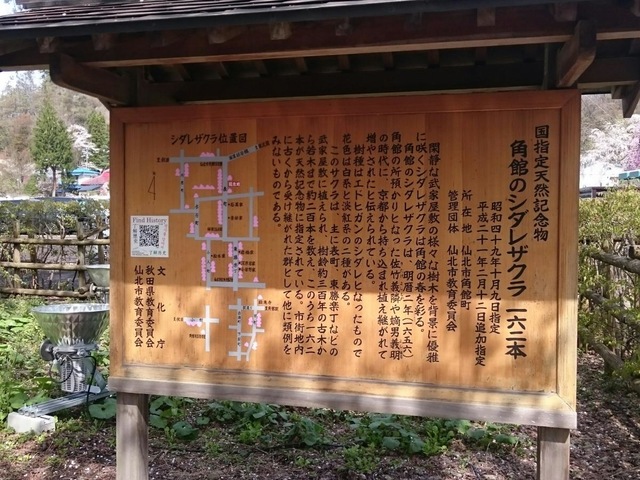 国指定天然記念物
角館のシダレザクラ 一六二本
昭和四十九年十月九日指定
平成二十一年二月十二日追加指定
所在地 仙北市角館町
管理団体 仙北市教育委員会
閑静な武家屋敷の様々な樹木を背景に優雅
に咲くシダレザクラは角館の春を彩る。
角館のシダレザクラは、明暦二年(一六五六)
角館の所預かりとなった佐竹義隣や嫡男義明
の時代に、京都から持ち込まれ植え継がれて
増やされたと伝えられている。
樹種はエドヒガンのシダレとなったもので
花色は白系と淡紅系の二種がある。
このサクラは、主に表町、東勝楽丁などの
武家屋敷内に植えられ、樹齢約三百年の古木か
ら若木まで約二百本を数え、このうち一六二
本が天然記念物に指定されている。市街地内
に古くから受け継がれた群として他に類例を
みないものである。
シダレザクラ位置図
Find History
文化庁
秋田県教育委員会
仙北市教育委員会